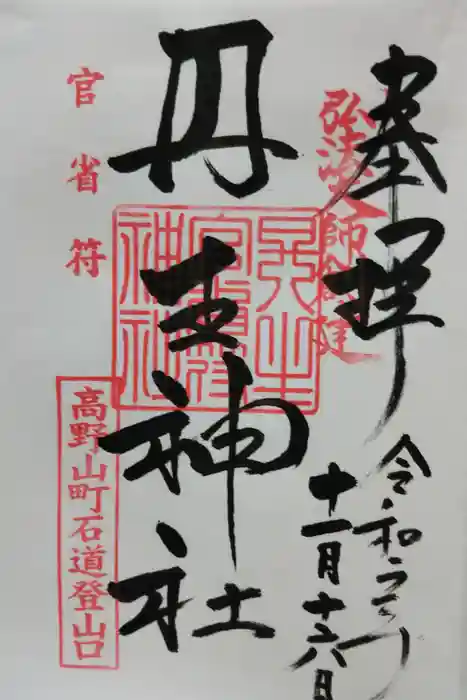 奉拝
弘法大師創建
令和
十一月十六日
丹生神社
官省符
高野山町石道登山口